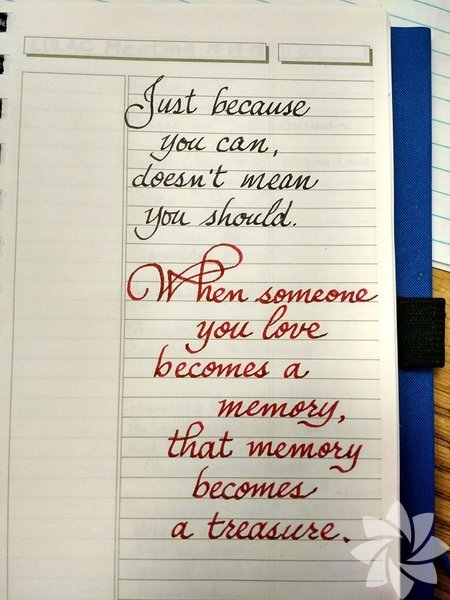 Just because
you can,
doesn't mean
you should.
When someone
you love
becomes a
memory,
that memory
becomes
a treasure.